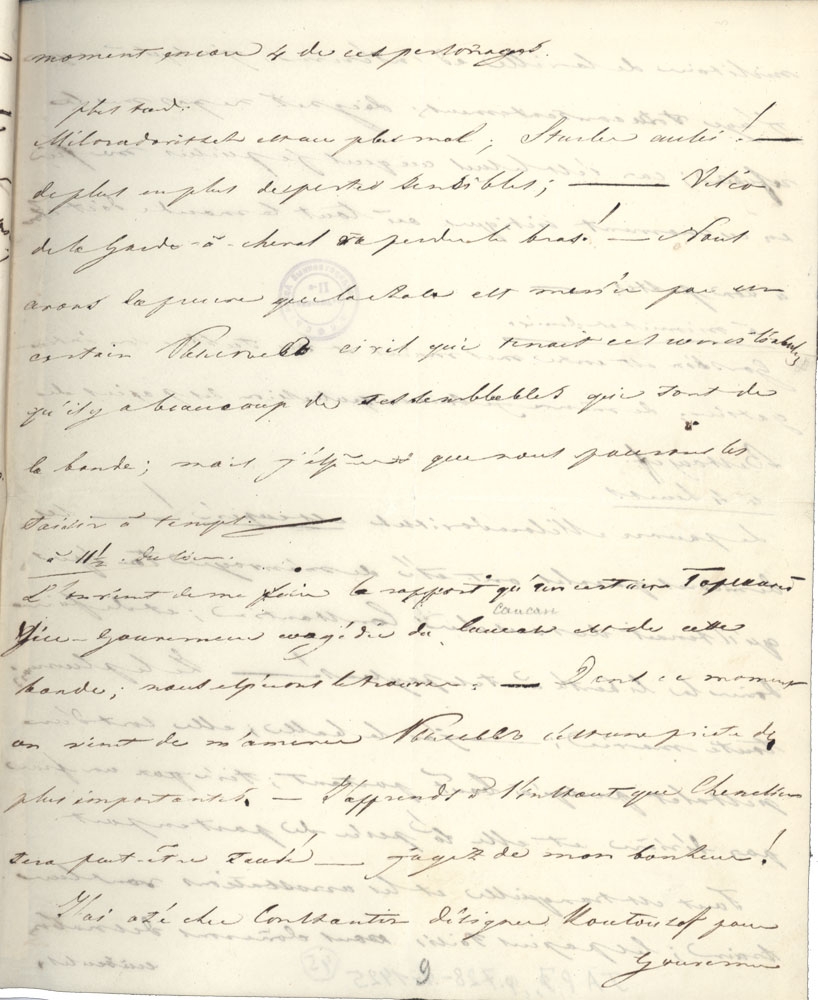 moment encore 4 de ces personages.
plus tard.
Miloradovitsch est au plus mal; Sturler aussi! —
de plus en plus des pertes sensibles; — Velёo
de la Garde-à-cheval a perdu le bras! — Nous
avons la preuve que la chose est menée par un
certain civil qui
qu'il y a beaucoup de ses semblables qui sont de
la bande; mais j'espère que nous pourrons les
saisir à temps. —
à 11½ du soir.
L'on vient de me faire le rapport qu'un certain
Vice-Gouverneur du caucase est de cette
caucase
bande; nous espérons le trouver. — Dans ce moment
on vient de m'amener c'est une prise des
plus importantes. — J'apprends à l'instant que
sera peut-être sauvé — jugez de mon bonheur!
J'ai osé cher Constantin désigner Koutousof pour
Gouverneur
9